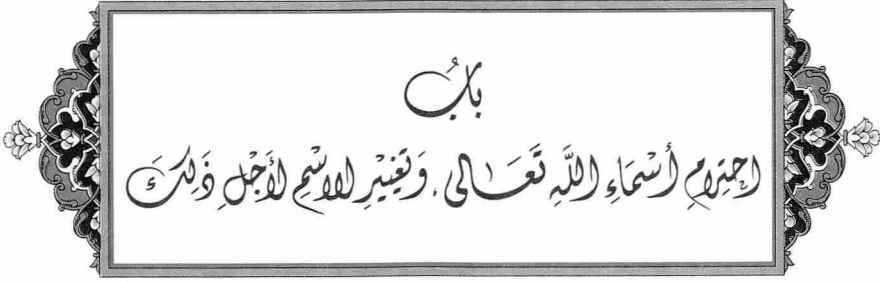 بَابُ
احْتِرَامِ أَسْمَاءِ اللَّهِ تَعَالَى، وَتَغْيِيرِ الِاسْمِ لِأَجْلِ ذَلِكَ